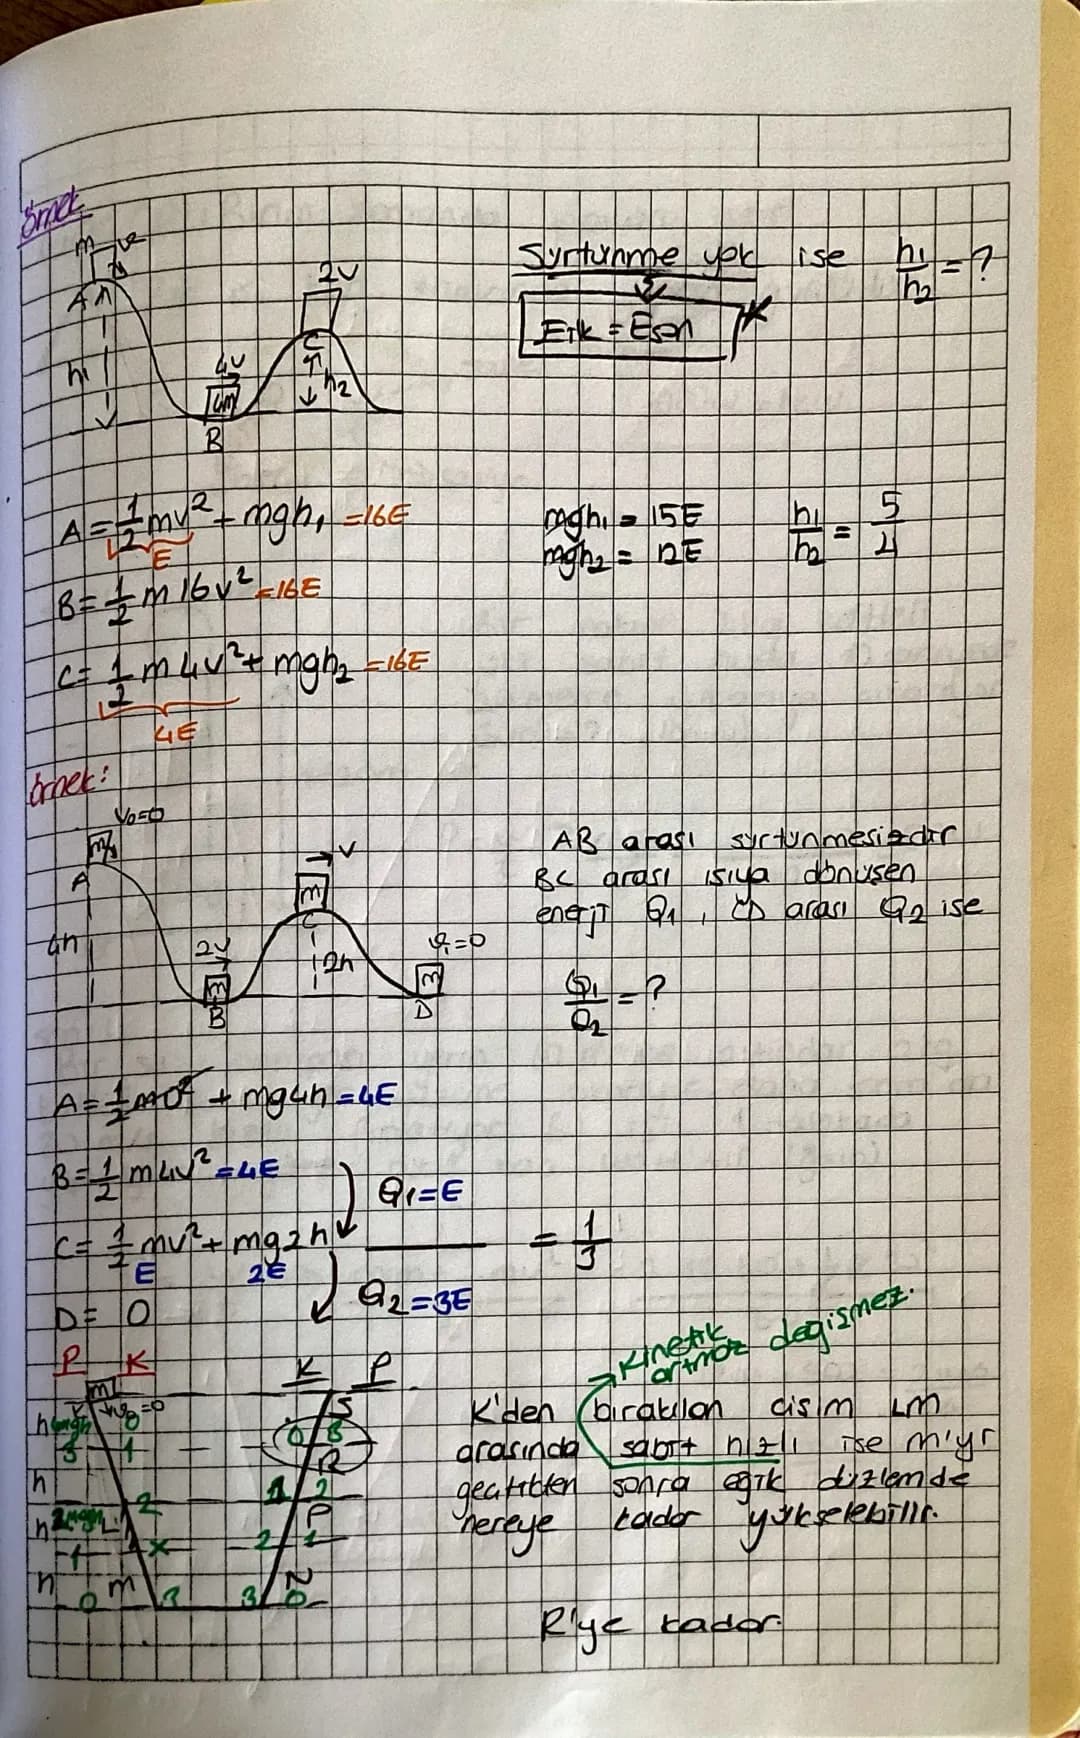 örnek
m v
A
h1
4v
m
B
2v
C
h2
Sürtünme yok ise h1/h2 = ?
Eilk = Eson
A = 1/2 mv² + mgh1 = 16E
E
B = 1/2 m 16v² = 16E
C = 1/2 m 4v² + mgh2 = 16E
4E
mgh1 = 15E
mgh2 = 12E
h1/h2 = 5/4
örnek:
V0=0
m
A
4h
2v
m
B
v
m
C
2h
m
D
AB arası sürtünmesizdir
BC arası ısıya dönüşen
enerji Q1, CD arası Q2 ise
Q1/Q2 = ?
A = 1/2 m0² + mg4h = 4E
B = 1/2 m4v² = 4E
C = 1/2 mv² + mg2h
E 2E
D = 0
Q1=E
Q2=3E
= 1/3
P K
K P
m
V0=0
h
3 1
h
2
h
1 x
h
0 m 3
S
0 3
R
1 2
P
2 1
N
3 0
Kinetik
artmaz değişmez.
K'den bırakılan cisim LM
arasında sabit hızlı ise M'yi
geçtikten sonra eğik düzlemde
nereye kadar yükselebilir.
R'ye kadar